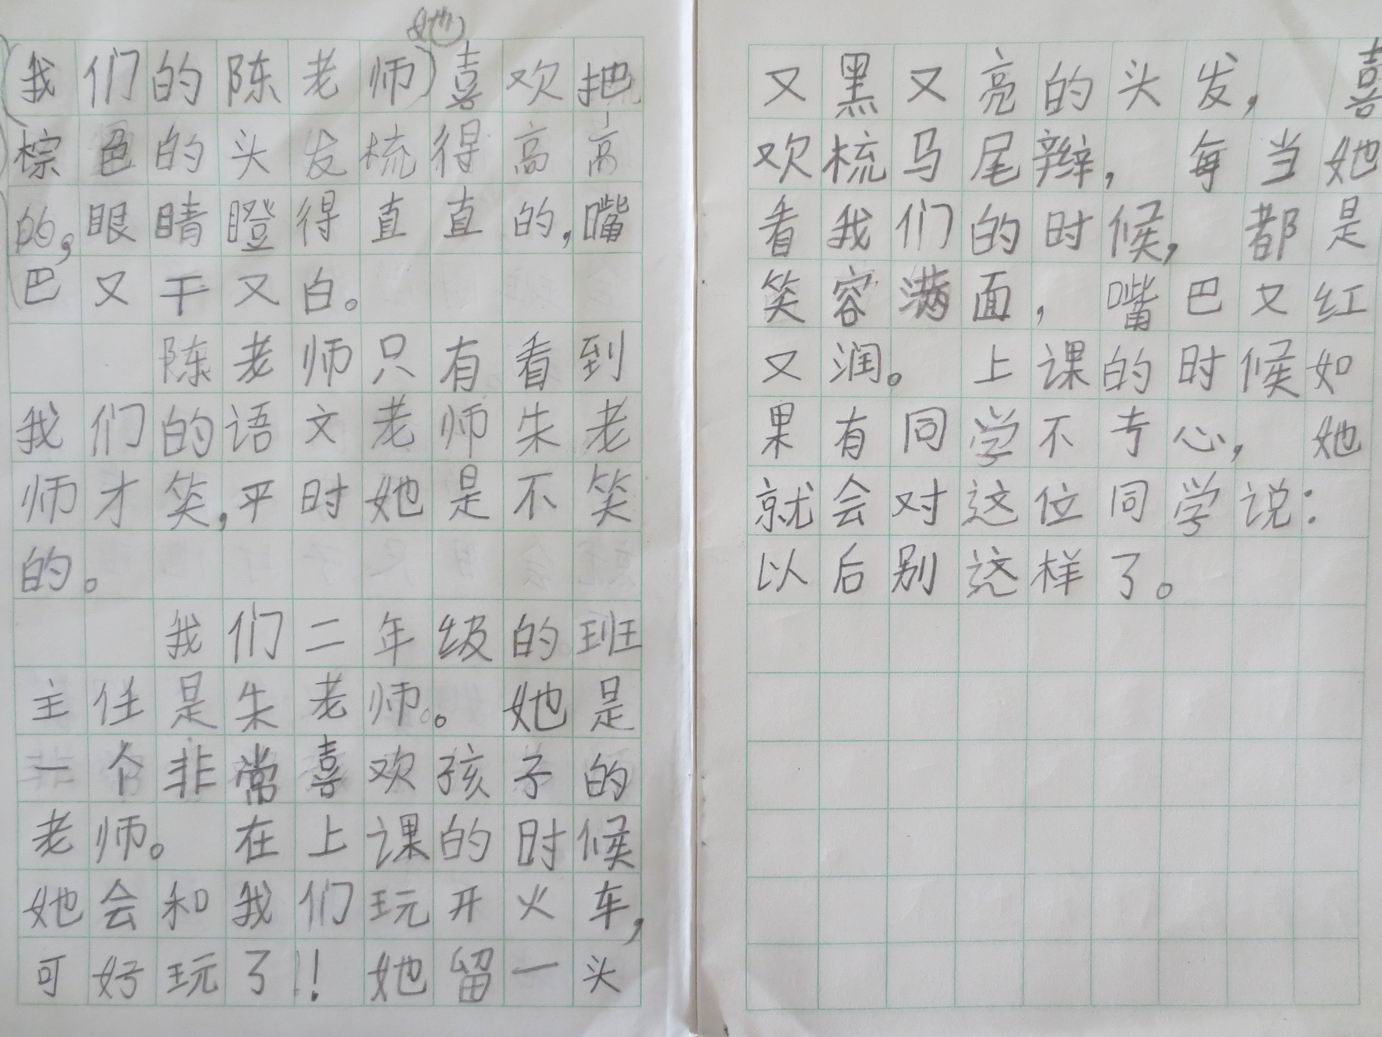 她
(我们的陈老师)喜欢把
棕色的头发梳得高高
的,眼睛瞪得直直的,嘴
巴又干又白。
陈老师只有看到
我们的语文老师朱老
师才笑,平时她是不笑
的。
我们二年级的班
主任是朱老师。她是
一个非常喜欢孩子的
老师。在上课的时候
她会和我们玩开火车,
可好玩了!她留一头
又黑又亮的头发,喜
欢梳马尾辫,每当她
看我们的时候,都是
笑容满面,嘴巴又红
又润。上课的时候如
果有同学不专心,她
就会对这位同学说:
以后别这样了。